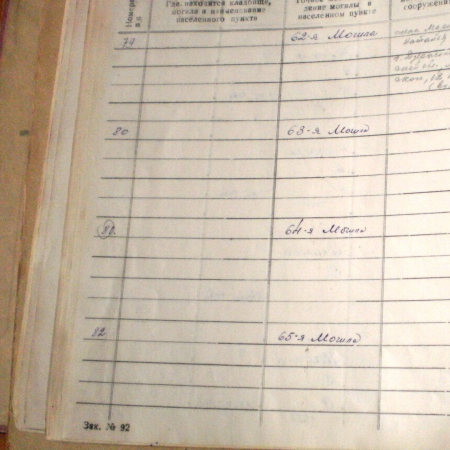 Номера
п.п.
Где находится кладбище,
могила и наименование
населенного пункта
ление могилы в
населенном пункте
сооружени
79 62-я Могила
80 63-я Могил
81 64-я Могил
82 65-я Могил
Зак. № 92